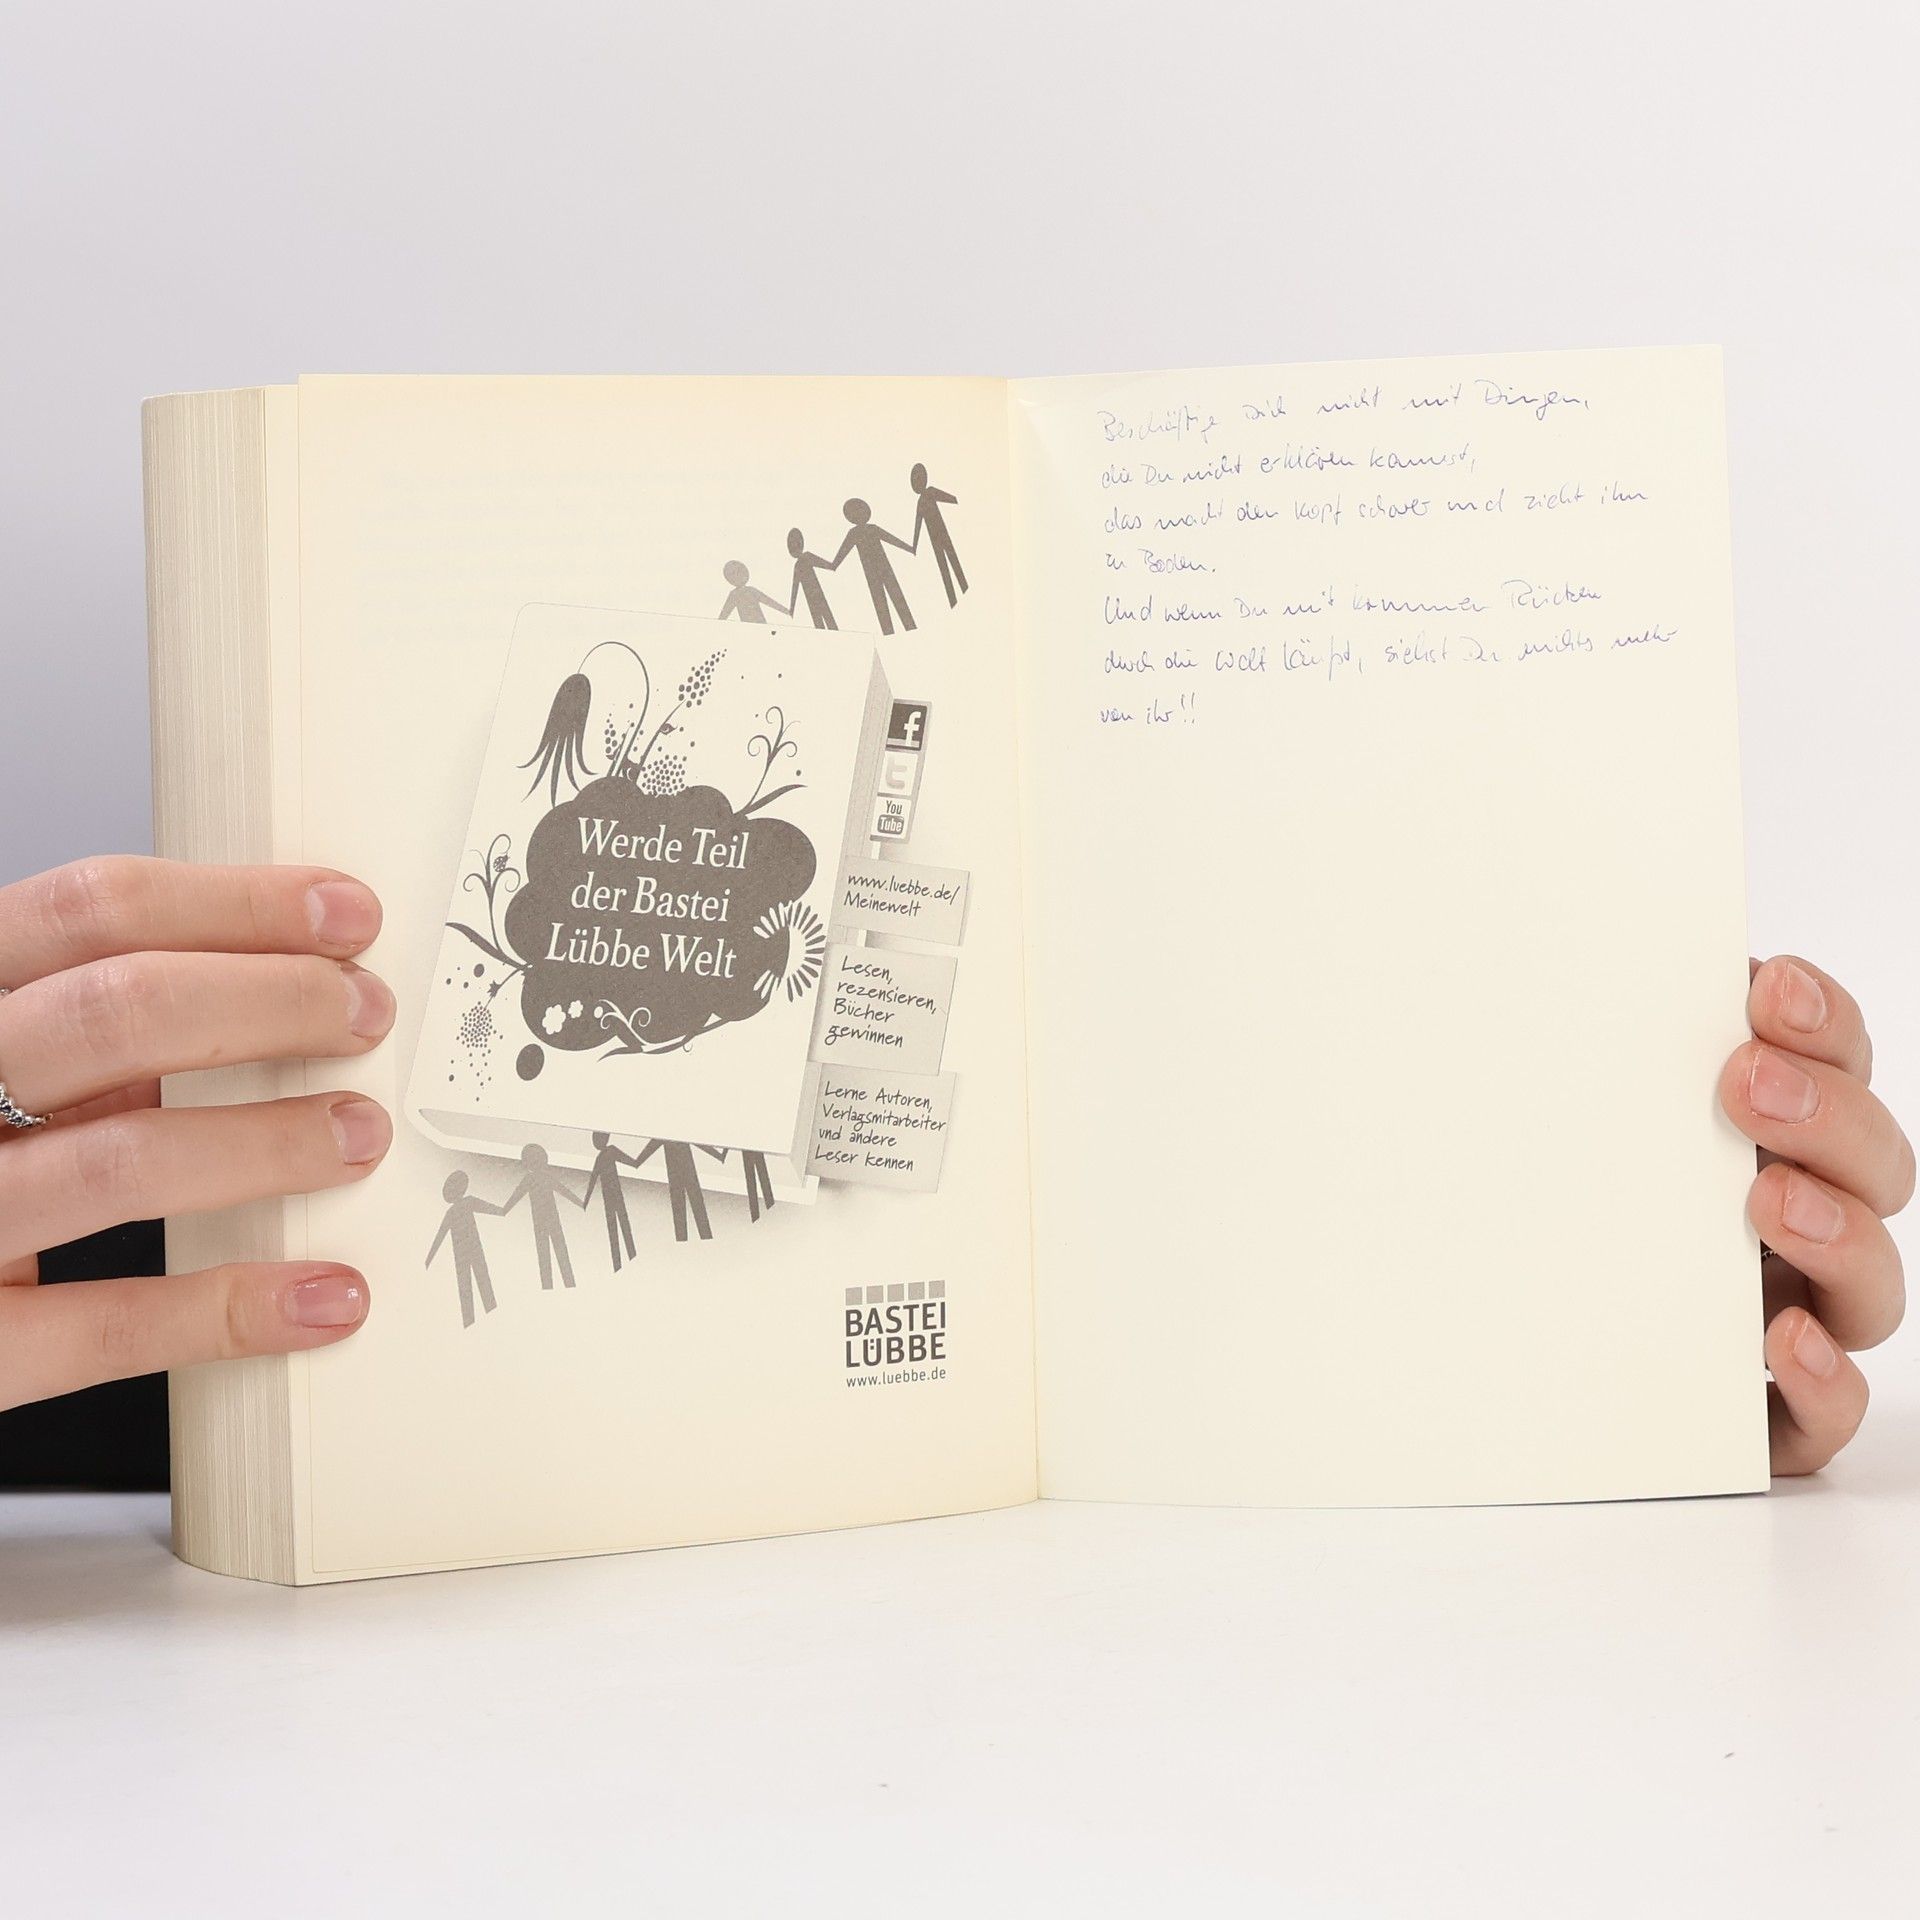 Werde Teil
der Bastei
Lübbe Welt
f
t
You
Tube
www.luebbe.de/
Meinewelt
Lesen,
rezensieren,
Bücher
gewinnen
Lerne Autoren,
Verlagsmitarbeiter
und andere
Leser kennen
BASTEI
LÜBBE
www.luebbe.de
Beschäftige Dich nicht mit Dingen,
die Du nicht erklären kannst,
das macht den Kopf schwer und zieht ihn
zu Boden.
Und wenn Du mit krummen Rücken
durch die Welt läufst, siehst Du nichts mehr
von ihr!!